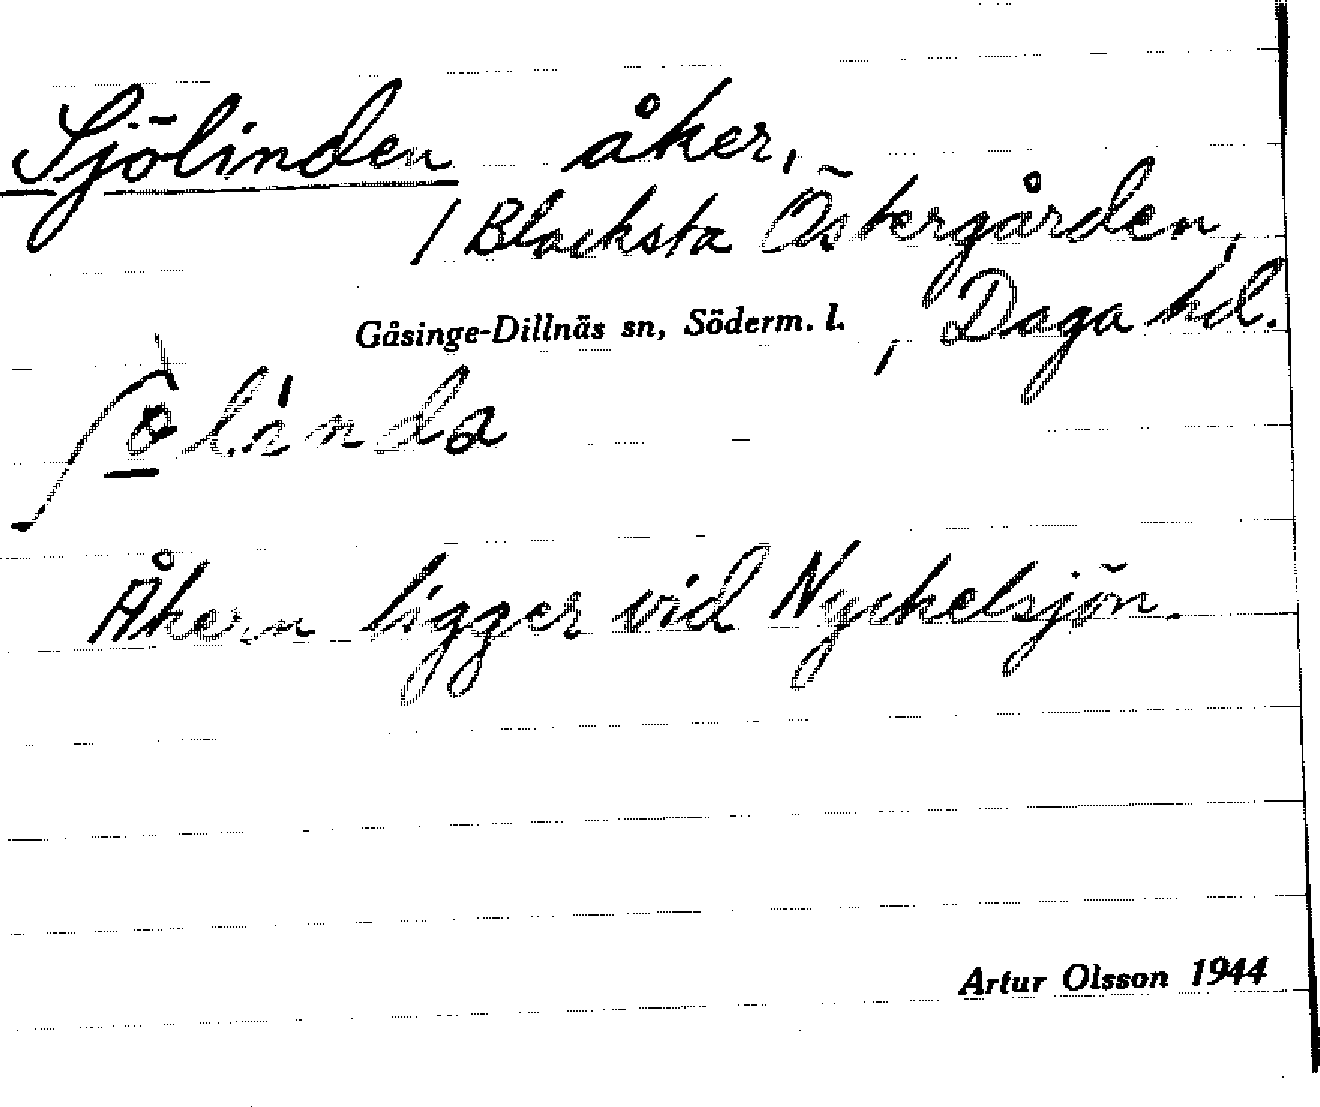 Sjölinden åker,
/ Blacksta Östergården,
Gåsinge-Dillnäs sn, Söderm. l. , Daga hd.
ʃö̀lìnda
Åkern ligger vid Nyckelsjön.
Artur Olsson 1944